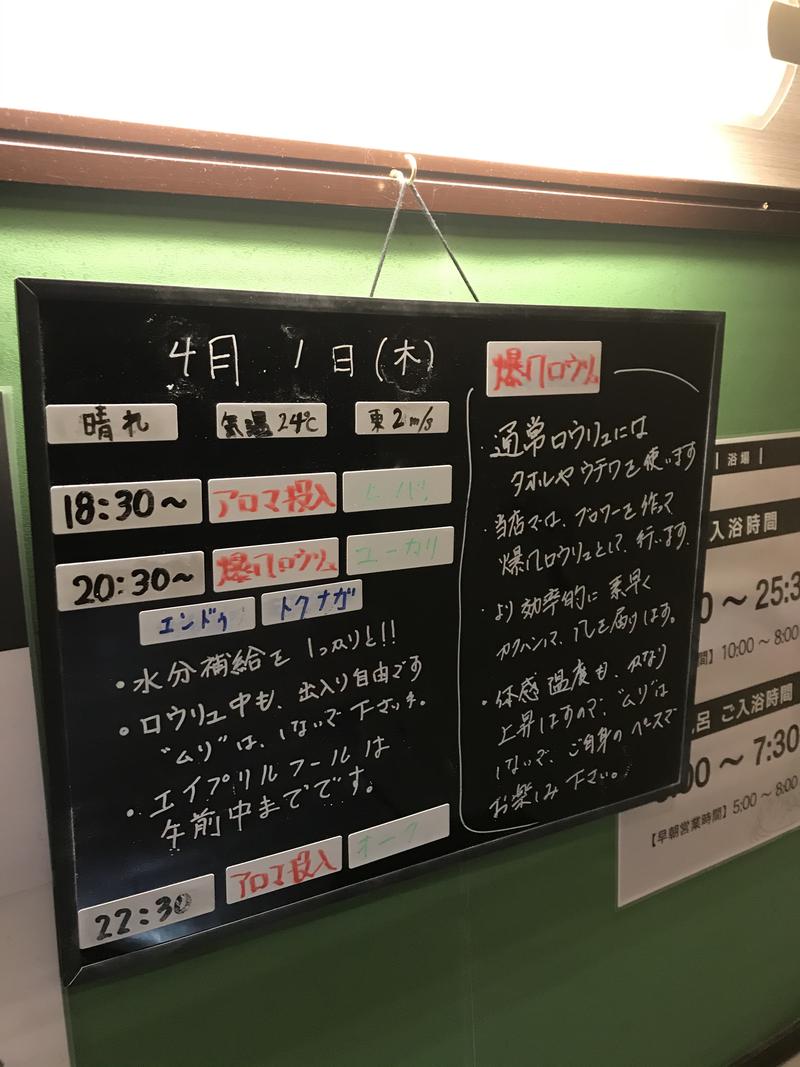 4月 1日(木)
晴れ 気温24℃ 東2m/s
18:30〜 アロマ投入 ヒバ
20:30〜 爆風ロウリュ ユーカリ
エンドゥ トクナガ
・水分補給を しっかりと!!
・ロウリュ中も、出入り自由です
"ムリ"は、しないで下さいネ。
・エイプリルフールは
午前中までです。
22:30 アロマ投入 オーク
爆風ロウリュ
通常ロウリュには
タオルやウチワを使います
・当店では、ブロワーを使って
爆風ロウリュとして、行います。
・より効率的に素早く
カクハンして、風を届けます。
・体感温度も、かなり
上昇しますので、"ムリ"は
しないで、ご自身のペースで
お楽しみ下さい。
浴場
入浴時間
0 〜 25:3
間】10:00 〜 8:00
呂 ご入浴時間
:00 〜 7:30
【早朝営業時間】5:00 〜 8:00